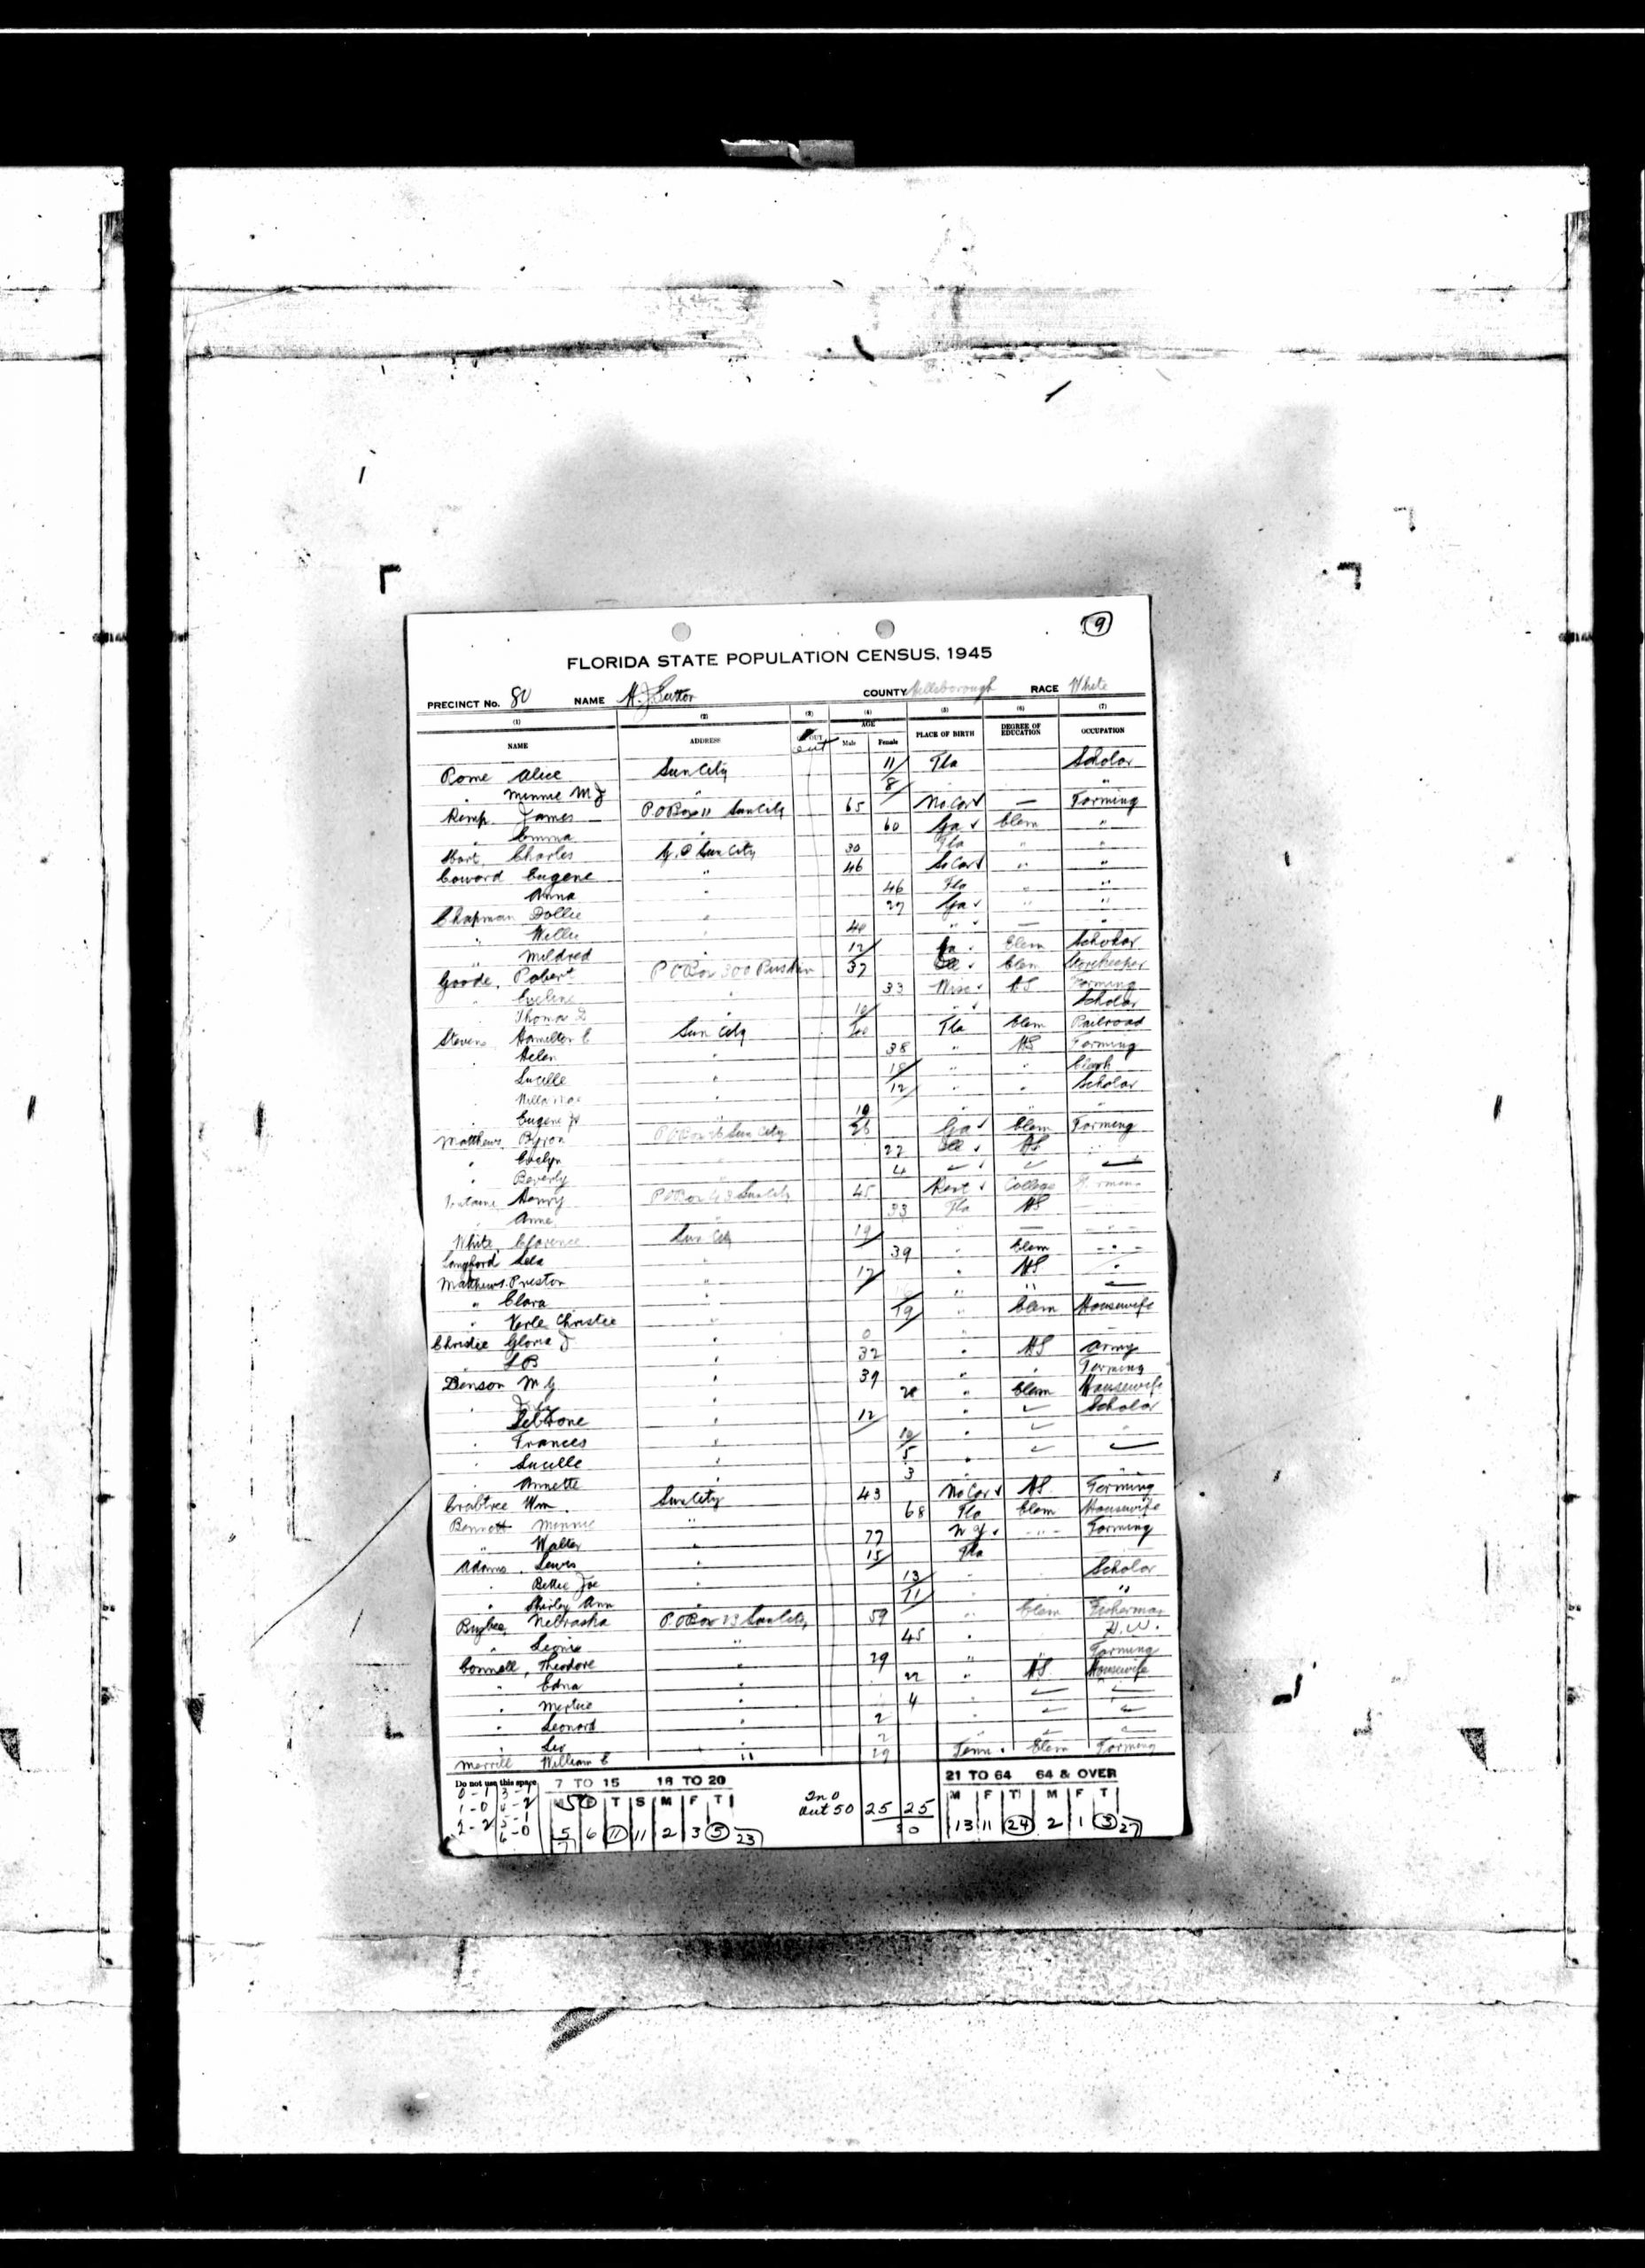 9
FLORIDA STATE POPULATION CENSUS, 1945
PRECINCT No. 80 NAME H. J. Sutton COUNTY Hillsborough RACE White
(1) (2) (3) (4) (5) (6) (7)
NAME ADDRESS out AGE Male Female PLACE OF BIRTH DEGREE OF EDUCATION OCCUPATION
Rome Alice Sun City 11 Fla Scholar
" Minnie M J " 8 "
Kemp James P.O Box 11 Sun City 65 No Car — Farming
" Emma " 60 Ga Elem "
Hart Charles Sun City 30 Fla " "
Coward Eugene " 46 So Car " "
Anna " 46 Fla " "
Chapman Dollie " 27 Ga " "
" Willie " 40 " — "
" Mildred " 12 Elem Scholar
Goode, Robert P O Box 300 Ruskin 37 Ill Elem Storekeeper
" Eveline " 33 Wisc HS Farming
" Thomas D " 10 " Scholar
Stevens Hamilton E Sun City Fla Elem Railroad
Helen " 38 " HS Farming
Lucille " 18 " " Clerk
Willa Mae " 12 " " Scholar
Eugene Jr " 10 " " "
Matthews Byron P O Box Sun City 26 Ga Elem Farming
" Evelyn " 22 Ill HS
" Beverly " 4
Henry P O Box 43 Sun City 45 Kent College Farming
" Anne " 33 Fla HS
White, Clarence Sun City 19 " —
Langford Lela " 39 " Elem
Matthews. Preston " 17 " HS
" Clara " " "
" Verle Christie " 19 " Elem Housewife
Christie Gloria J " 0 "
" L B " 32 " HS Army
Denson M G " 39 " " Farming
" 28 " Elem Housewife
" 12 " Scholar
" Frances " 10 "
" Lucille " 5 "
" Annette " 3 "
Crabtree Wm. Sun City 43 No Car HS. Farming
Bennett Minnie " 68 Fla Elem Housewife
" Walter " 77 N Y. " Farming
Adams. Lewis " 15 Fla
" Bettie Joe " 13 " Scholar
" Shirley Ann " 11 " "
Bugbee, Nebraska P O Box 23 Sun City 59 " Elem Fisherman
" Leonie " 45 " H. W.
Connell, Theodore " 29 " " Farming
" Edna " 22 " HS. Housewife
" Mertie " 4 "
" Leonard " 2 "
" Leo " 2 "
Merrill William E " 29 Tenn. Elem Farming
Do not use this space 7 TO 15 16 TO 20 21 TO 64 64 & OVER
M F T S M F T M F T M F T
0-1 3-1
1-0 4-2
2-2 5-1
6-0
5 6 11 11 2 3 5 23 In 0 Out 50 25 25 50 13 11 24 2 1 3 27